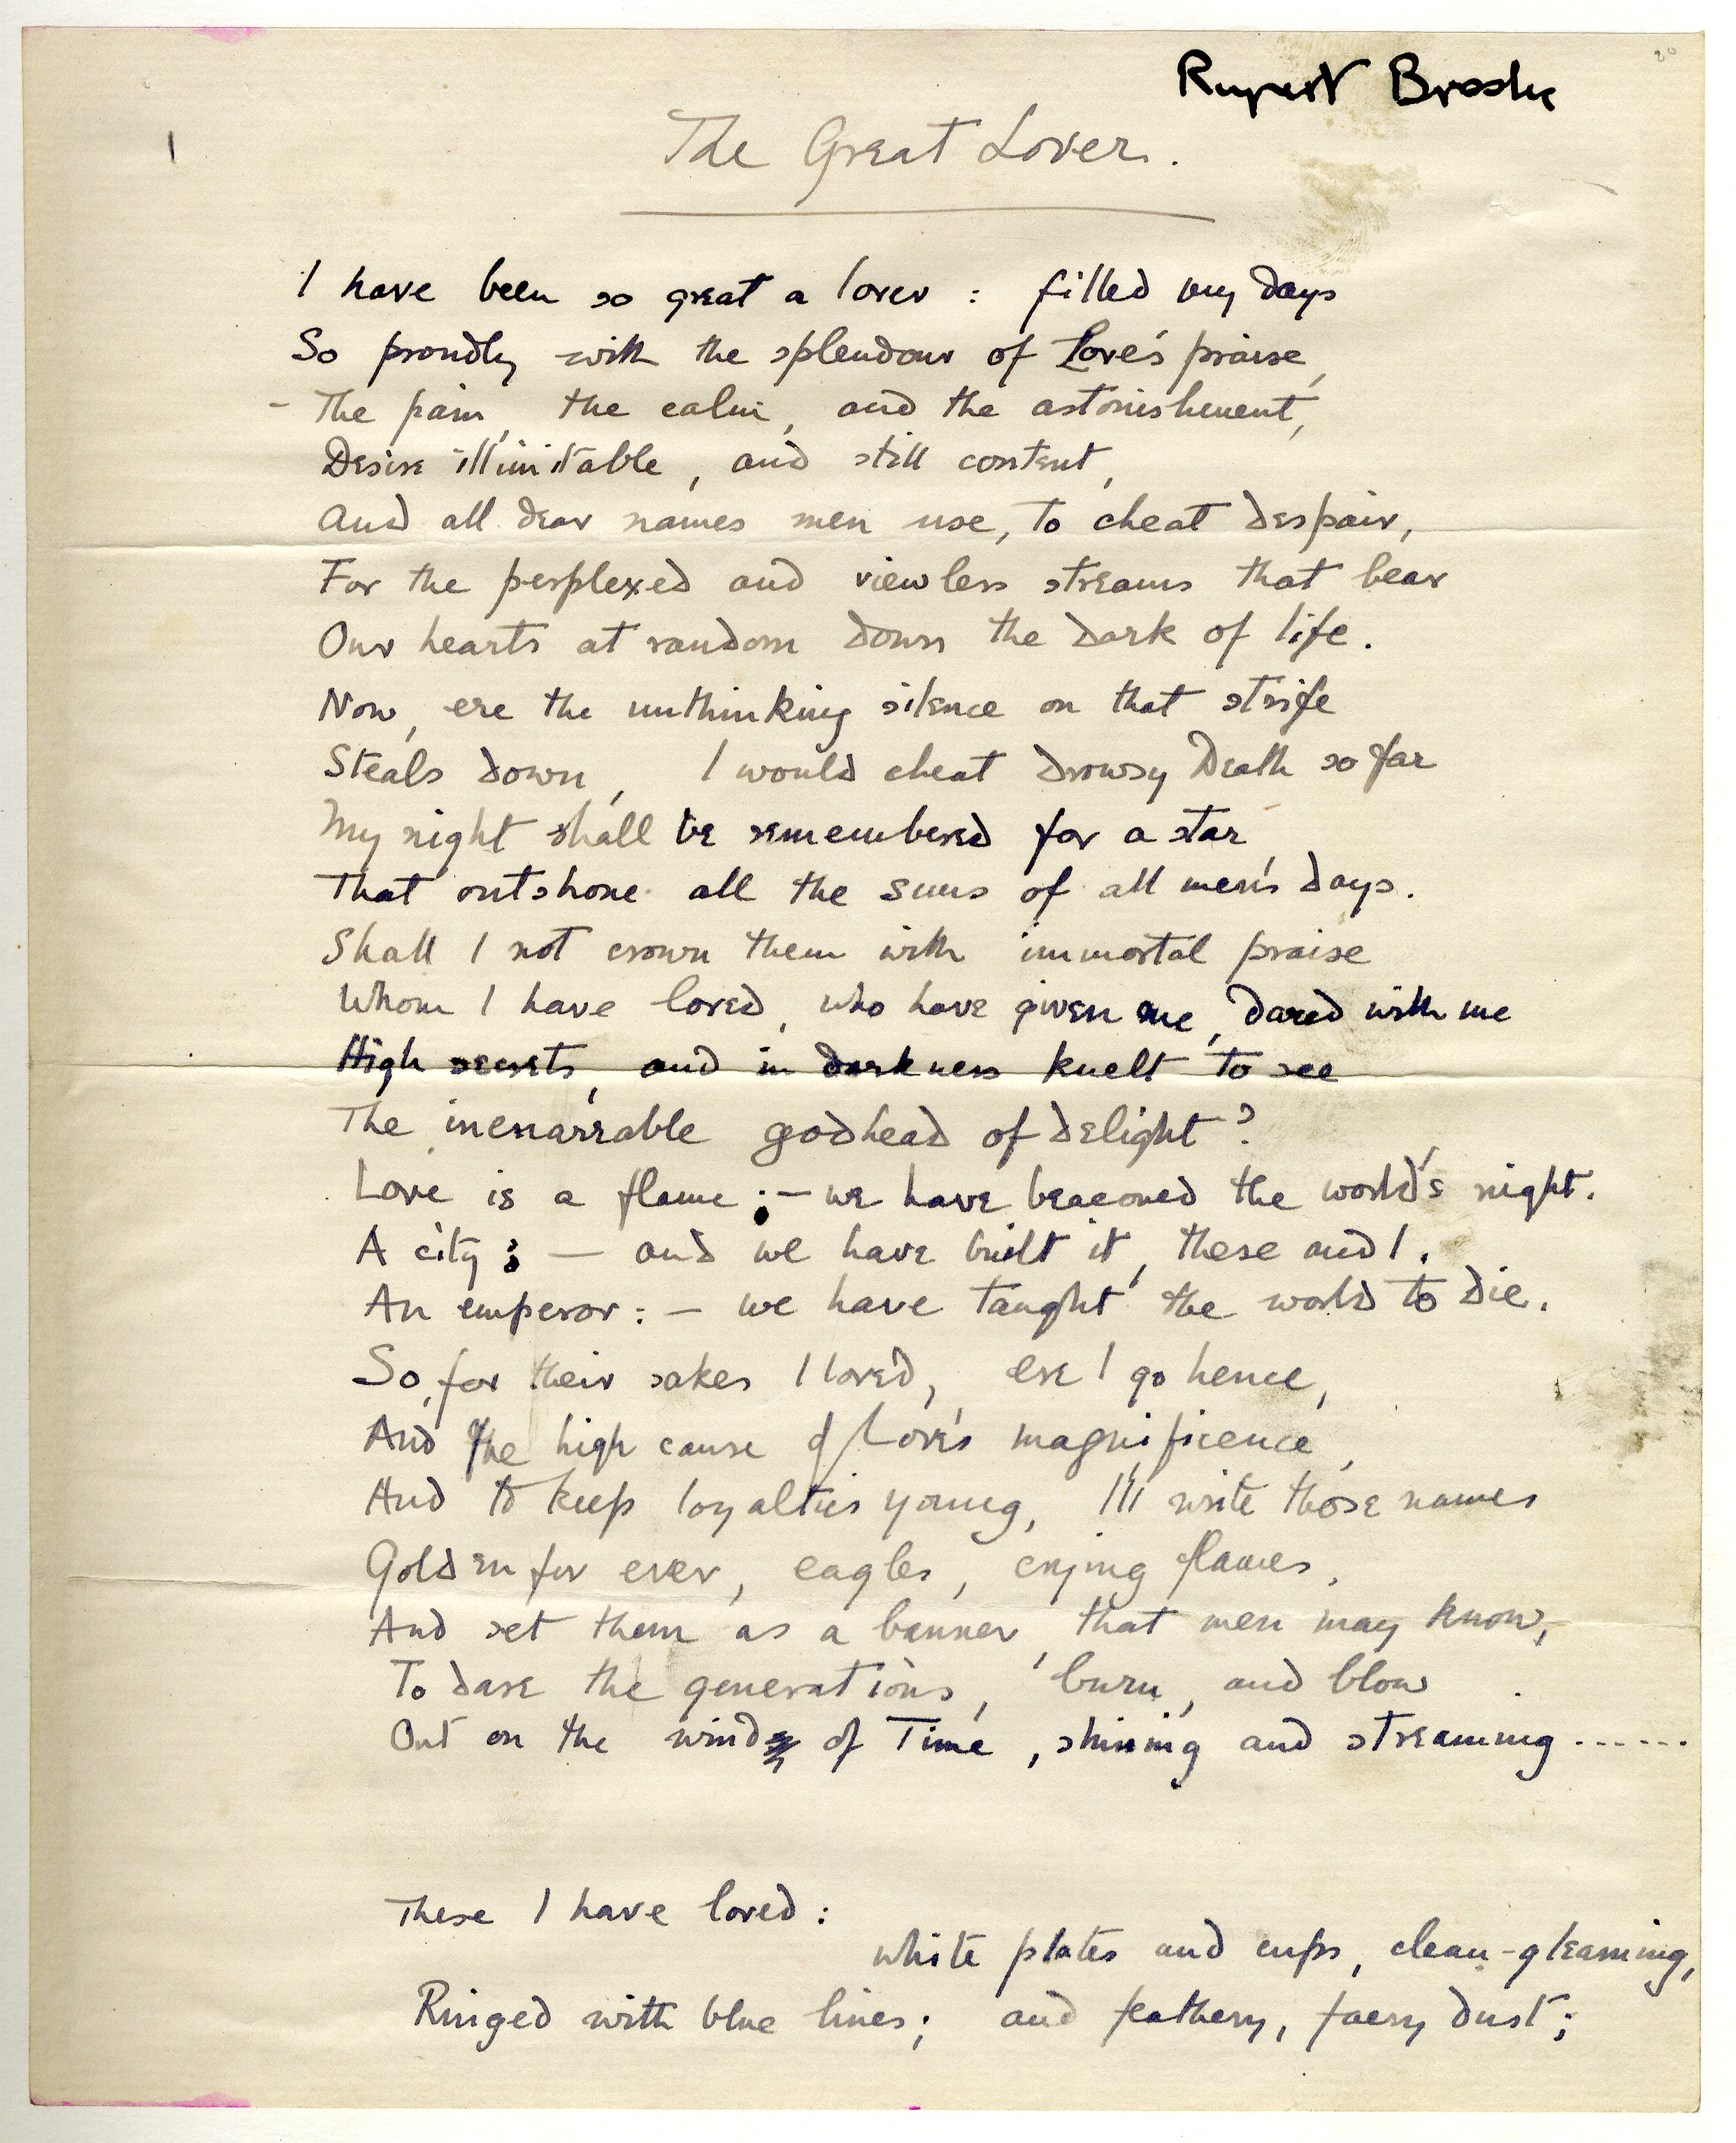 20
Rupert Brooke
The Great Lover.
1
I have been so great a lover : filled my days
So proudly with the splendour of Love's praise,
- The pain, the calm, and the astonishment,
Desire illimitable, and still content,
And all dear names men use, to cheat despair,
For the perplexed and viewless streams that bear
Our hearts at random down the dark of life.
Now, ere the unthinking silence on that strife
Steals down, I would cheat drowsy Death so far
My night shall be remembered for a star
That outshone all the suns of all men's days.
Shall I not crown them with immortal praise
Whom I have loved, who have given me, dared with me
High secrets, and in darkness knelt to see
The inenarrable godhead of delight?
Love is a flame ; — we have beaconed the world's night.
A city ; — and we have built it, these and I.
An emperor : — we have taught the world to die.
So, for their sakes I loved, ere I go hence,
And the high cause of Love's magnificence,
And to keep loyalties young, I'll write those names
Golden for ever, eagles, crying flames,
And set them as a banner, that men may know,
To dare the generations, burn, and blow
Out on the wind of Time, shining and streaming ......
These I have loved :
white plates and cups, clean-gleaming,
Ringed with blue lines; and feathery, faery dust;